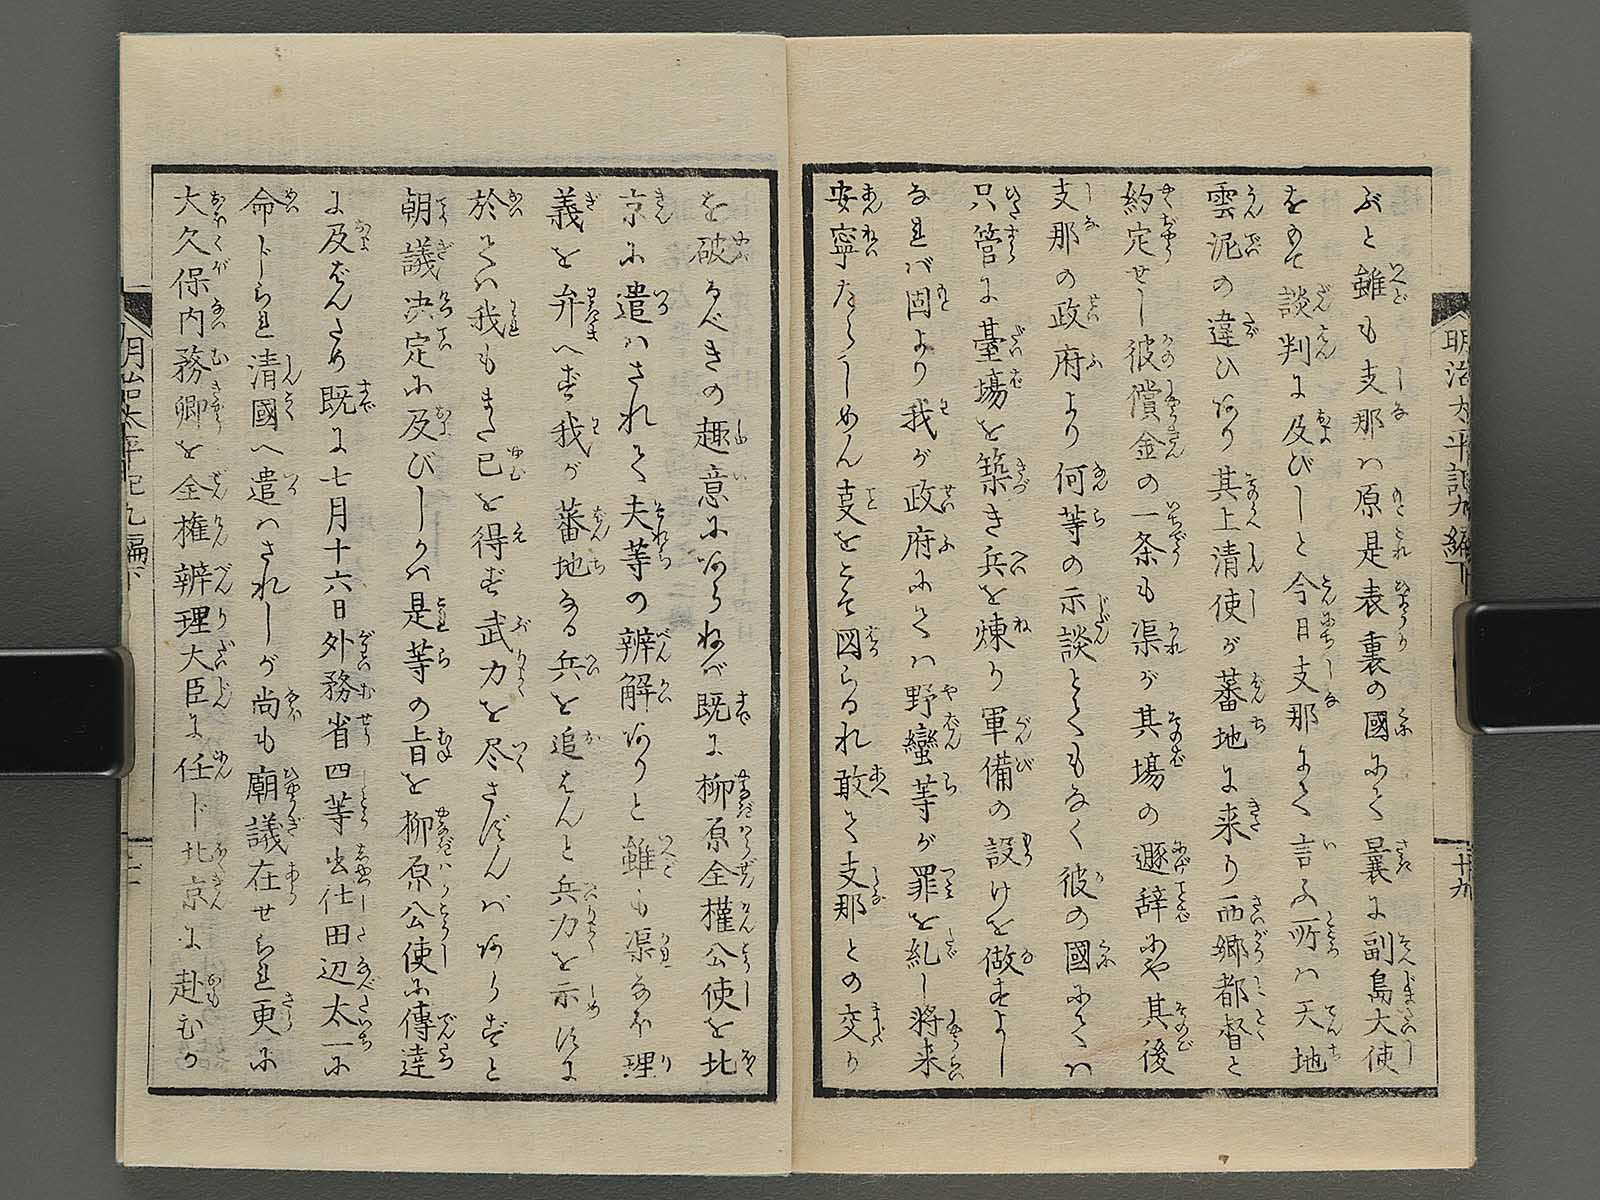 ぶと雖も支那ハ原是表裏の國にて曩に副島大使
をもて談判に及びしと今日支那にて言ふ所ハ天地
雲泥の違ひあり其上清使が蕃地に来り西郷都督と
約定せし彼償金の一条も渠が其場の遯辞にや其後
支那の政府より何等の示談とてもなく彼の國にてハ
只管に臺場を築き兵を煉り軍備の設けを做すよし
なればバ固より我が政府にてハ野蠻等が罪を糺し將来
安寧ならしめん叓をとて図らるれ敢て支那との交り
を破るべきの趣意にあらねバ既に柳原全權公使を北
京に遣ハされて夫等の辨解ありと雖も渠なほ理
義を弁へず我が蕃地なる兵を追はんと兵力を示すに
於てハ我もまた已を得ず武力を尽さずんバあらずと
朝議决定に及びしかバ是等の旨を柳原公使に傳達
に及ばんため既に七月十六日外務省四等出仕田辺太一に
命ドられ清國へ遣ハされしが尚も廟議在せられ更に
大久保内務卿を全権辨理大臣に任ド北京に赴むか
明治太平記九編下
十九
明治太平記九編下